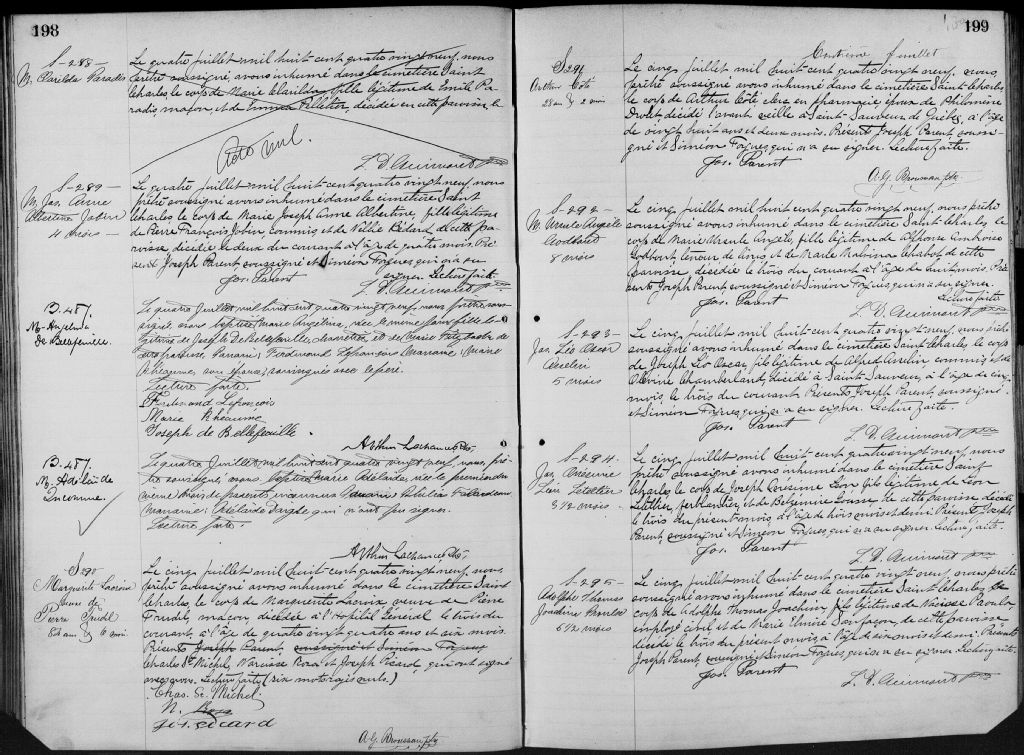 198
S-288-
M. Clarilda Paradis
Le quatre juillet mil huit-cent quatre vingt neuf, nous
prêtre soussigné, avons inhumé dans le cimetière Saint
Charles, le corps de Marie Clarilda, fille légitime de Emile Pa-
radis, maçon, et de Emma Pelletier, décédée en cette paroisse, le
Acte nul.
L. D. Guimont ptre
S-289-
M. Jos. Anne
Albertine Jobin
4 mois -
Le quatre juillet mil huit-cent quatre vingt neuf, nous
prêtre soussigné avons inhumé dans le cimetière Saint
Charles le corps de Marie Joseph Anne Albertine, fille légitime
de Pierre François Jobin, commis et de Bélard de cette pa-
roisse décédée le deux du courant à l'âge de quatre mois. Pré-
sents Joseph Parent soussigné et Siméon qui n'a su
signer. Lecture faite.
Jos. Parent
L. D. Guimont ptre
B. 457.
M. Angelina
de Bellefeuille.
Le quatre Juillet mil huit cent quatre vingt neuf, nous prêtre sous-
signé avons baptisé Marie Angelina, née le même jour, fille lé-
gitime de Joseph De Bellefeuille, et de Marie de
cette paroisse, Parrain: Ferdinand Lefrançois Marraine: Marie
Rheaume, son épouse, soussignés avec le père.
Lecture faite.
Ferdinand Lefrançois
Marie Rheaume
Joseph de Bellefeuille.
Arthur Lachance Ptr.
B. 457.
M. Adélaïde
Inconnue.
Le quatre Juillet mil huit cent quatre vingt neuf, nous, prê-
tre soussigné, avons baptisé Marie Adelaide, née le premier du
même mois de parents inconnus Parrain:
Marraine: Adelaide qui n'ont su signer.
Lecture faite.
Arthur Lachance Ptr.
S 290
Marguerite Lacroix
veuve de
Pierre Trudel
84 ans & 6 mois.
Le cinq juillet mil huit-cent quatre vingt neuf, nous,
prêtre soussigné avons inhumé dans le cimetière Saint
Charles, le corps de Marguerite Lacroix veuve de Pierre
Trudel, maçon, décédée à l'Hopital Général le trois du
courant, à l'âge de quatre vingt quatre ans et six mois.
Présents Joseph Parent, soussigné et Siméon
Charles St Michel, Narcisse et Joseph Picard, qui ont signé
avec nous. Lecture faite (six mots rayés nuls.)
Chas. St. Michel
N.
Jos. Picard
A. G. Brousseau ptr
199
Centième feuillet
S 291
Arthur Côté
28 ans & 2 mois
Le cinq juillet mil huit-cent quatre vingt neuf, nous,
prêtre soussigné avons inhumé dans le cimetière Saint-Charles,
le corps de Arthur Côté clerc en pharmacie, époux de Philomène
Drolet décédé l'avant veille à Saint-Sauveur de Québec, à l'âge
de vingt huit ans et deux mois. Présents Joseph Parent, soussi-
gné et Siméon qui n'a su signer. Lecture faite.
Jos. Parent
A. G. Brousseau ptr.
S-292-
M. Ursule Angèle
Godbout
8 mois
Le cinq juillet mil huit cent quatre vingt neuf, nous prêtre
soussigné avons inhumé dans le cimetière Saint-Charles, le
corps de Marie Ursule Angèle, fille légitime de Alphonse
Godbout, teneur de livres, et de Marie Malvina Chabot de cette
paroisse décédée le trois du courant à l'âge de huit mois, Pré-
sents Joseph Parent soussigné et Siméon qui n'a su signer.
Lecture faite
Jos. Parent
L. D. Guimont ptre
S-293-
Jos. Léo Oscar
Asselin
5 mois
Le cinq juillet mil huit-cent quatre vingt neuf, nous, prêtre
soussigné avons inhumé dans le cimetière Saint-Charles, le corps
de Joseph Léo Oscar, fils légitime de Alfred Asselin, commis, et de
Chamberland, décédé à Saint-Sauveur, à l'âge de cinq
mois, le trois du courant. Présents Joseph Parent, soussigné
et Siméon qui n'a su signer. Lecture faite.
Jos. Parent
L. D. Guimont ptre
S-294-
Jos.
Léon Letellier
3 1/2 mois -
Le cinq juillet mil huit-cent quatre vingt neuf, nous
prêtre soussigné avons inhumé dans le cimetière Saint
Charles, le corps de Joseph Léon fils légitime de Léon
Letellier, ferblantier, et de de cette paroisse décédé
le trois du présent mois, à l'âge de trois mois et demi. Présents Joseph
Parent, soussigné et Siméon qui n'a su signer. Lecture faite.
Jos. Parent
L. D. Guimont ptre
S-295-
Adolphe Thomas
Joachim
6 1/2 mois
Le cinq juillet mil huit-cent quatre vingt neuf, nous prêtre
soussigné avons inhumé dans le cimetière Saint Charles, le
corps de Adolphe Thomas Joachim, fils légitime de Narcisse
employé civil et de Marie Elmire Sanfaçon, de cette paroisse
décédé le trois du présent mois, à l'âge de six mois et demi. Présents
Joseph Parent, soussigné et Siméon qui n'a su signer. Lecture faite.
Jos. Parent
L. D. Guimont ptre